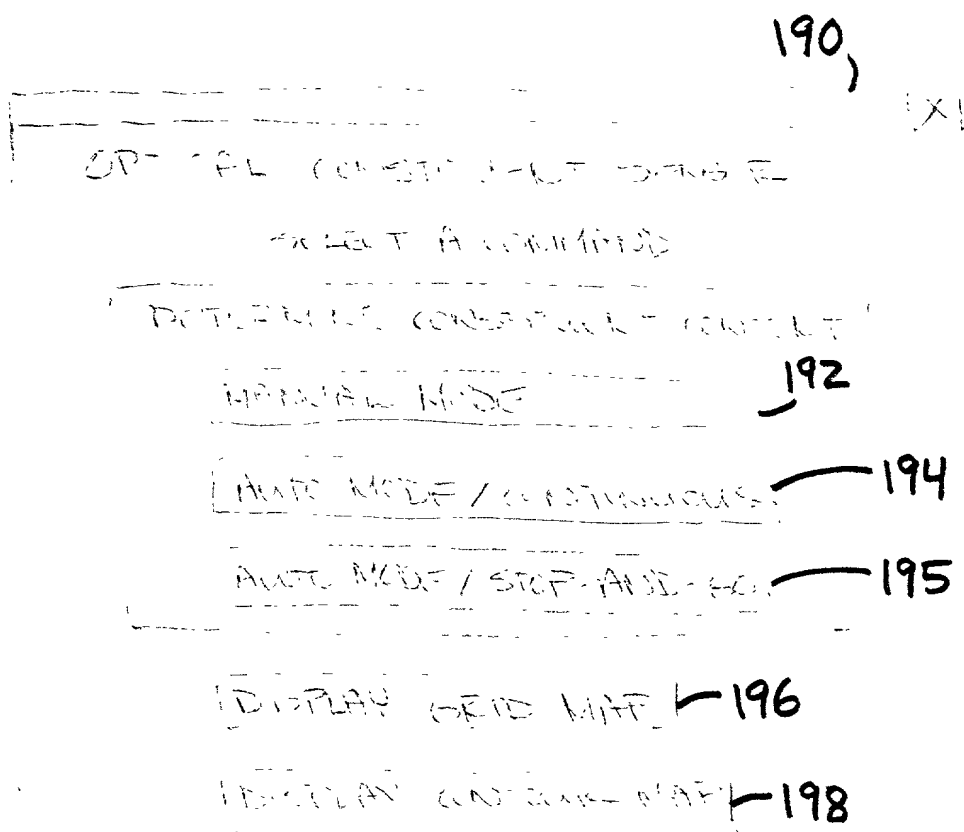 190
X
SELECT A COMMAND
DETERMINE CONSTITUENT CONTENT
192
MANUAL MODE
AUTO MODE / CONTINUOUS 194
AUTO MODE / STOP-AND-GO 195
DISPLAY GRID MAP 196
DISPLAY CONTOUR MAP 198